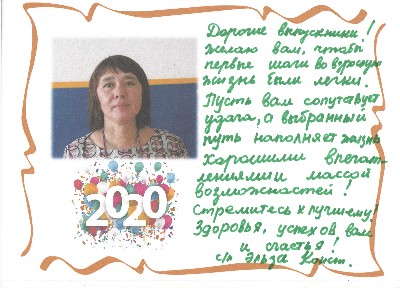 Дорогие выпускники!
желаю вам, чтобы
первые шаги во взрослую
жизнь были легки.
Пусть вам сопутствует
удача, а выбранный
путь наполняет жизнь
хорошими впечат-
лениями и массой
возможностей!
Стремитесь к лучшему!
Здоровья, успехов вам
и счастья!
с/п Эльза Конст.
2020